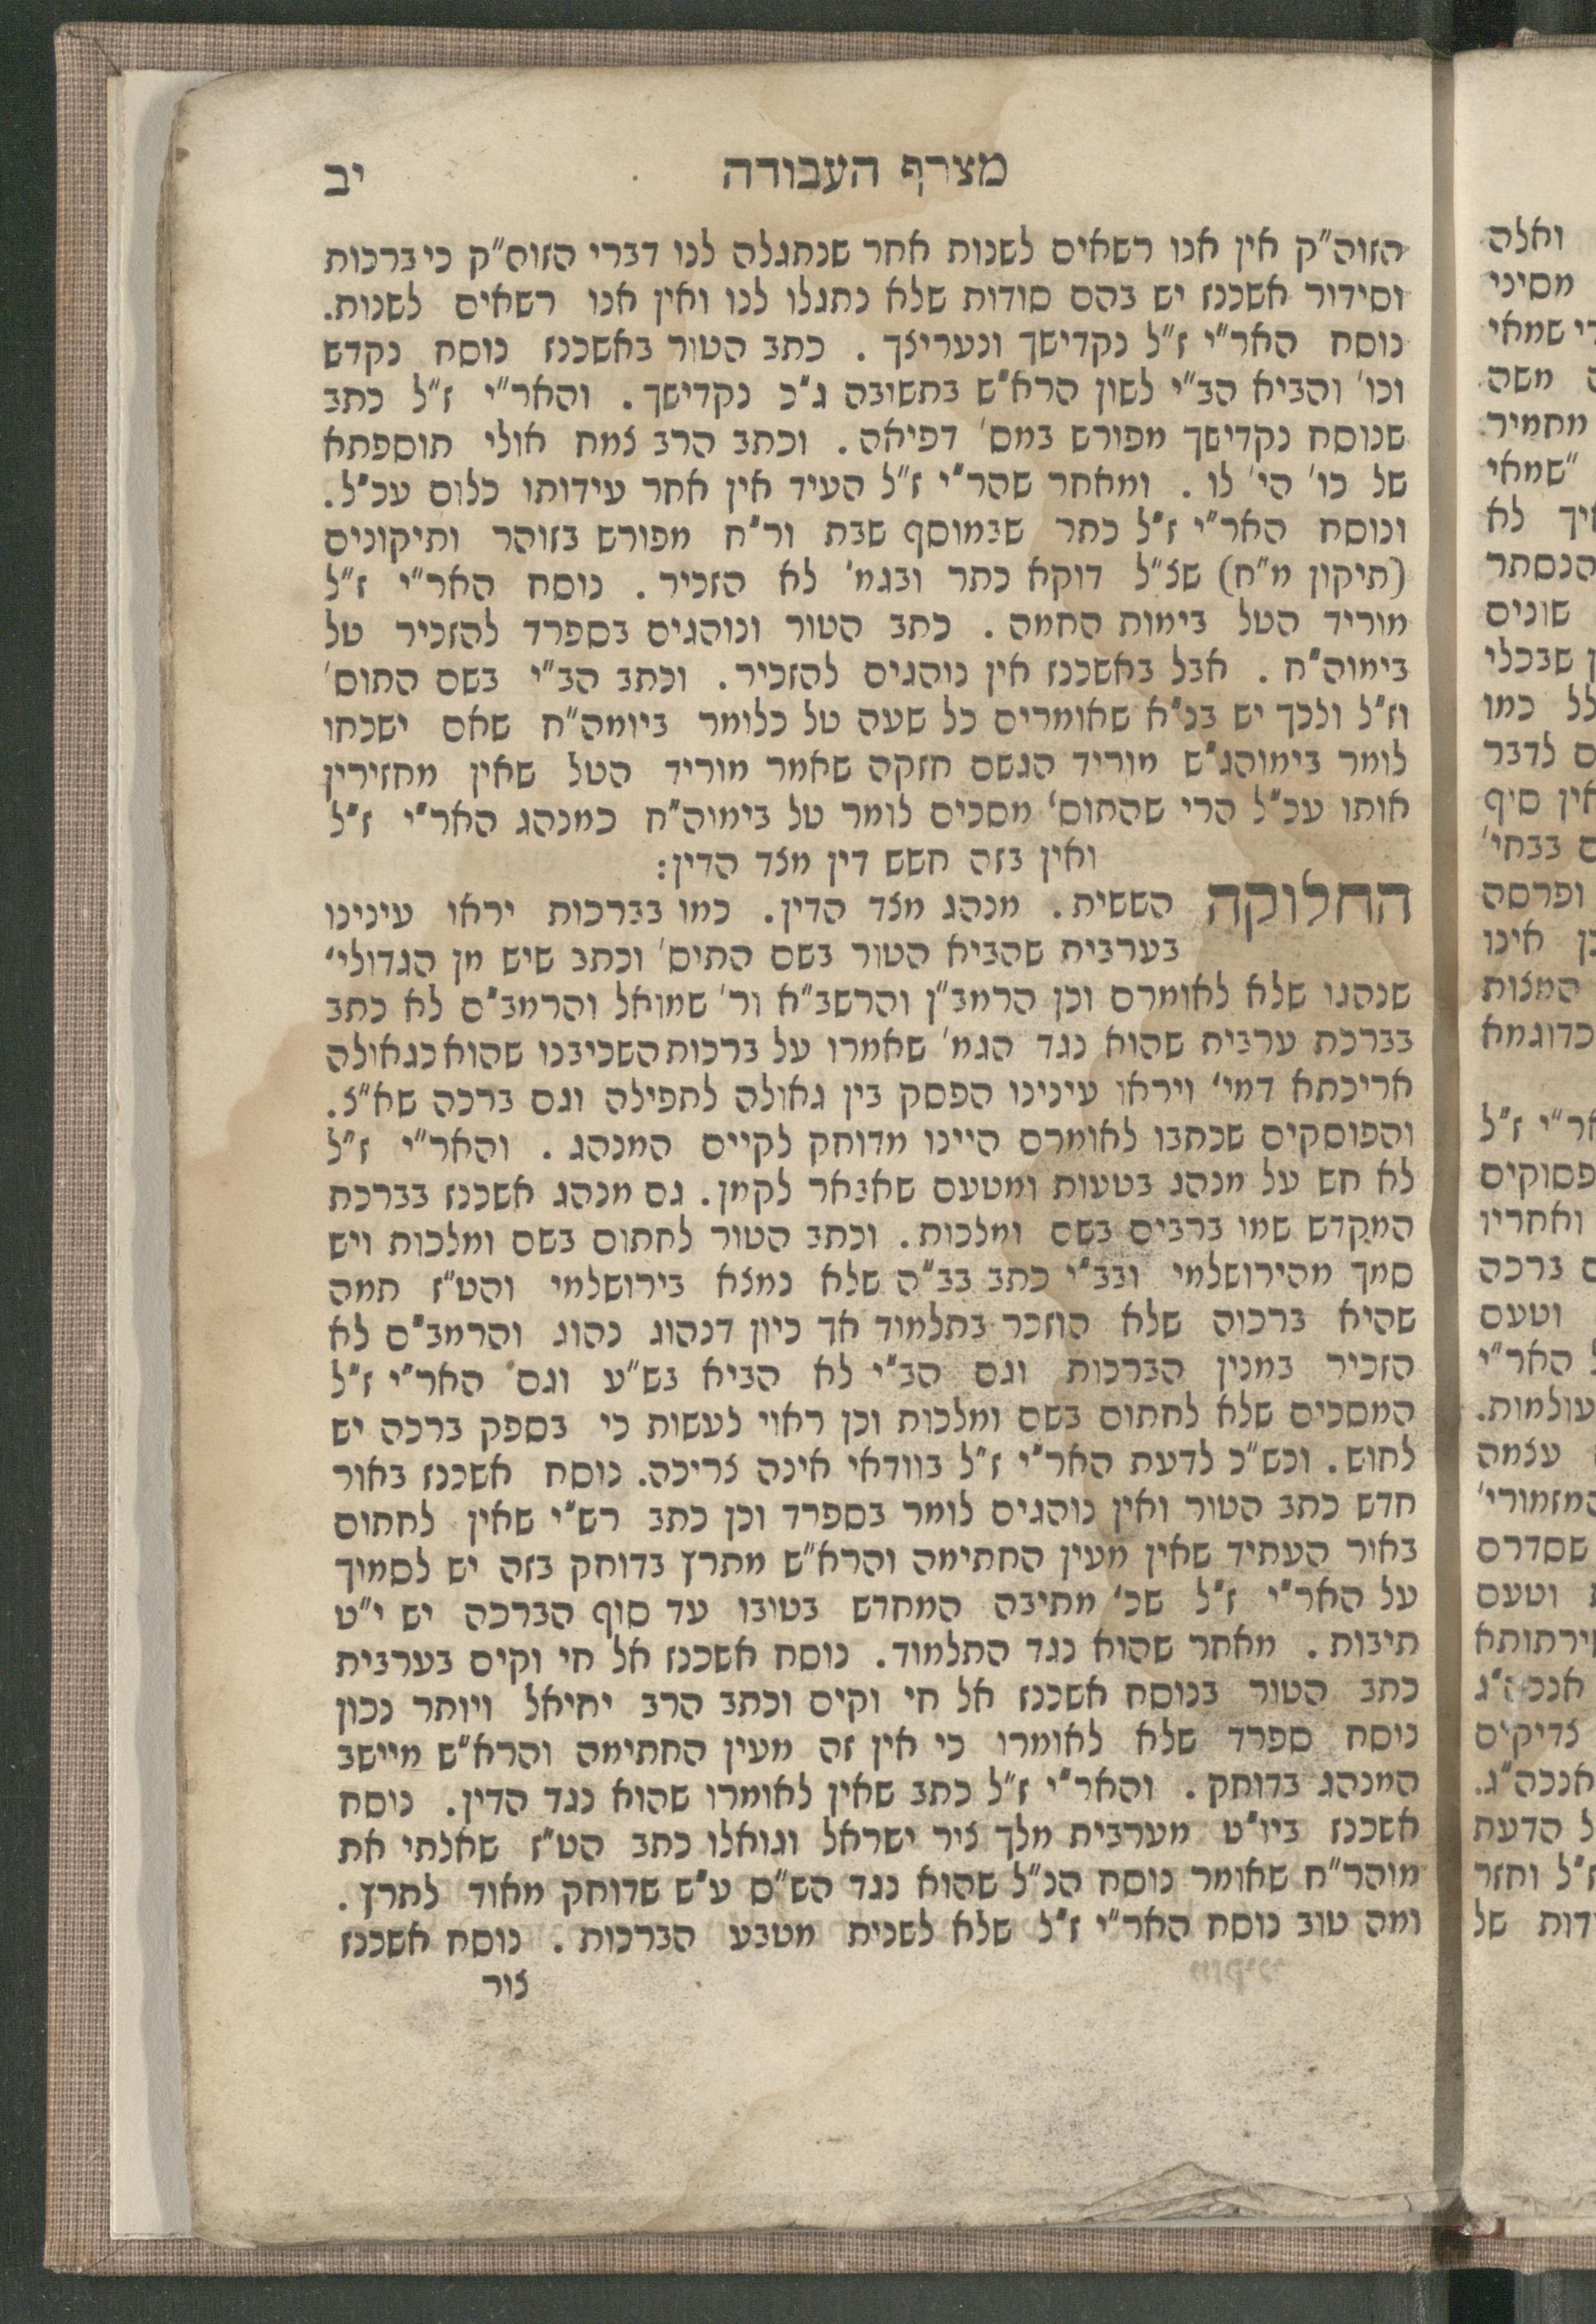 מצרף העבודה
יב
הזוה"ק אין אנו רשאים לשנות אחר שנתגלה לנו דברי הזוה"ק כי ברכות
וסידור אשכנז יש בהם סודות שלא נתגלו לנו ואין אנו רשאים לשנות.
נוסח האר"י ז"ל נקדישך ונעריצך. כתב הטור באשכנז נוסח נקדש
וכו' והביא הב"י לשון הרא"ש בתשובה ג"כ נקדישך. והאר"י ז"ל כתב
שנוסח נקדישך מפורש במס' דפיאה. וכתב הרב צמח אולי תוספתא
של כו' הי' לו. ומאחר שהר"י ז"ל העיד אין אחר עידותו כלום עכ"ל.
ונוסח האר"י ז"ל כתר שבמוסף שבת ור"ח מפורש בזוהר ותיקונים
(תיקון מ"ח) שצ"ל דוקא כתר ובגמ' לא הזכיר. נוסח האר"י ז"ל
מוריד הטל בימות החמה. כתב הטור ונוהגים בספרד להזכיר טל
בימוה"ח. אבל באשכנז אין נוהגים להזכיר. וכתב הב"י בשם התוס'
וז"ל ולכך יש בנ"א שאומרים כל שעה טל כלומר ביומה"ח שאם ישכחו
לומר בימוהג"ש מוריד הגשם חזקה שאמר מוריד הטל שאין מחזירין
אותו עכ"ל הרי שהתוס' מסכים לומר טל בימוה"ח כמנהג האר"י ז"ל
ואין בזה חשש דין מצד הדין:
החלוקה הששית. מנהג מצד הדין. כמו בברכות יראו עינינו
בערבית שהביא הטור בשם התיס' וכתב שיש מן הגדולי'
שנהגו שלא לאומרם וכן הרמב"ן והרשב"א ור' שמואל והרמב"ם לא כתב
בברכת ערבית שהוא נגד הגמ' שאמרו על ברכות השכיבנו שהוא כגאולה
אריכתא דמי' ויראו עינינו הפסק בין גאולה לתפילה וגם ברכה שא"צ.
והפוסקים שכתבו לאומרם היינו מדוחק לקיים המנהג. והאר"י ז"ל
לא חש על מנהג בטעות ומטעם שאבאר לקמן. גם מנהג אשכנז בברכת
המקדש שמו ברבים בשם ומלכות. וכתב הטור לחתום בשם ומלכות ויש
סמך מהירושלמי ובב"י כתב בב"ה שלא נמצא בירושלמי והט"ז תמה
שהיא ברכוה שלא הוזכר בתלמוד אך כיון דנהוג נהוג והרמב"ם לא
הזכיר במנין הברכות וגם הב"י לא הביא בש"ע וגם האר"י ז"ל
המסכים שלא לחתום בשם ומלכות וכן ראוי לעשות כי בספק ברכה יש
לחוש. וכש"כ לדעת האר"י ז"ל בוודאי אינה צריכה. נוסח אשכנז באור
חדש כתב הטור ואין נוהגים לומר בספרד וכן כתב רש"י שאין לחתום
באור העתיד שאין מעין החתימה והרא"ש מתרץ בדוחק בזה יש לסמוך
על האר"י ז"ל שכ' מתיבה המחדש בטובו עד סוף הברכה יש י"ט
תיבות. מאחר שהוא נגד התלמוד. נוסח אשכנז אל חי וקים בערבית
כתב הטור בנוסח אשכנז אל חי וקים וכתב הרב יחיאל ויותר נכון
נוסח ספרד שלא לאומרו כי אין זה מעין החתימה והרא"ש מיישב
המנהג בדוחק. והאר"י ז"ל כתב שאין לאומרו שהוא נגד הדין. נוסח
אשכנז ביו"ט מערבית מלך ציר ישראל וגואלו כתב הט"ז שאלתי את
מוהר"ח שאומר נוסח הנ"ל שהוא נגד הש"ס ע"ש שדוחק מאוד לתרץ.
ומה טוב נוסח האר"י ז"ל שלא לשנית מטבע הברכות. נוסח אשכנז
צור
ואלה
מסיני
שמאי
משה
מחמיר
"שמאי
לא
הנסתר
שונים
שבכלי
כמו
לדבר
אין סיף
בבחי'
ופרסה
אינו
המצות
כדוגמא
ז"ל
פסוקים
ואחריו
ברכה
וטעם
האר"י
עולמות.
עצמה
שסדרם
וטעם
צדיקים
אנכה"ג.
הדעת
וחזר
של